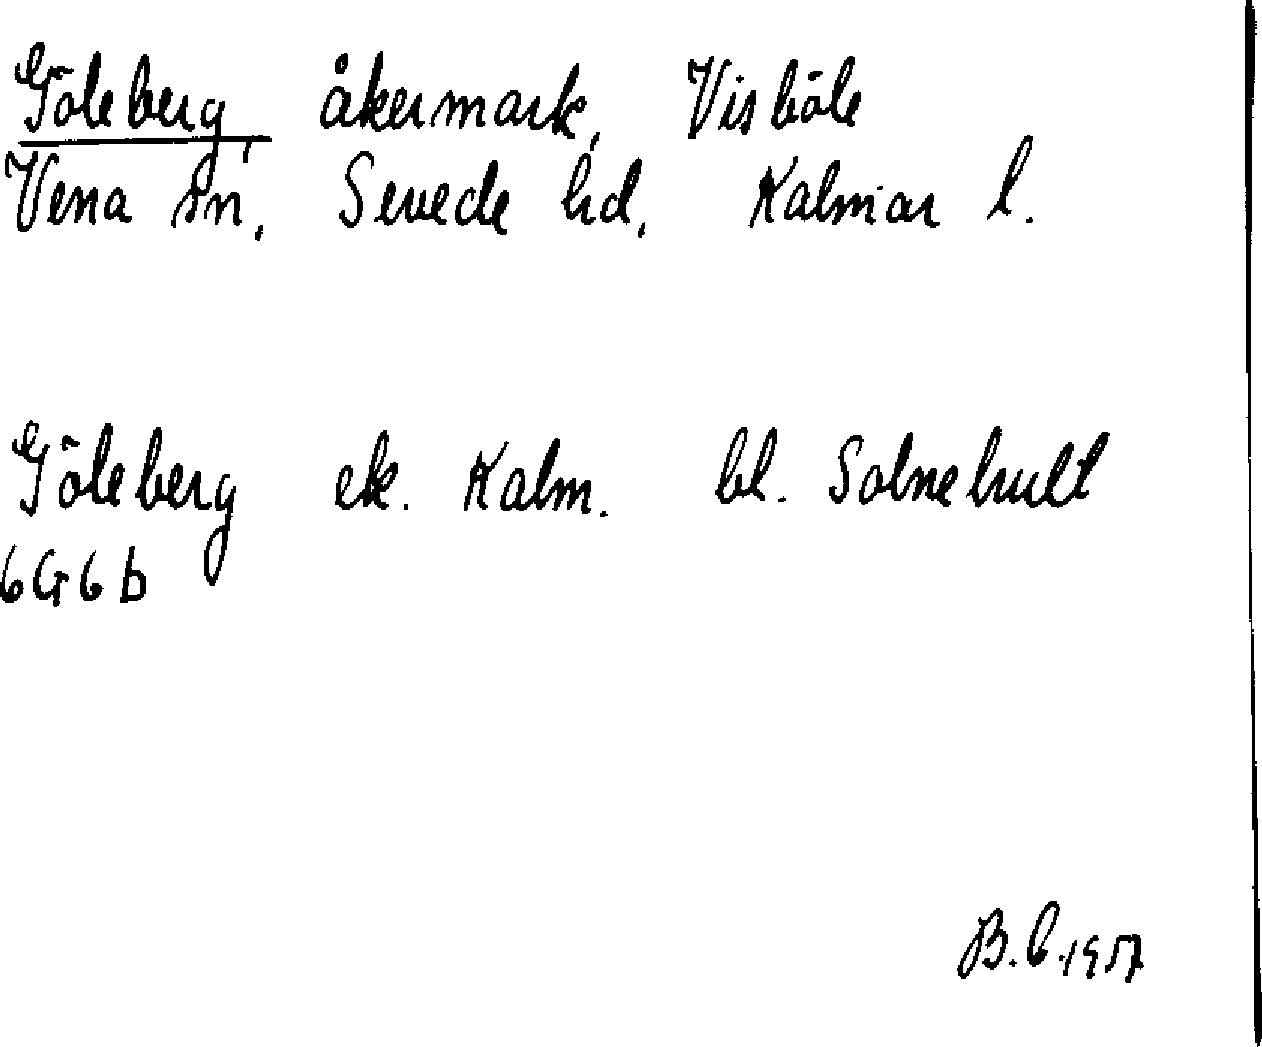 Göleberg, åkermark, Visböle
Vena sn, Sevede hd, Kalmar l.
Göleberg ek. Kalm. bl. Solnehult
6G6b
B.C. 1957